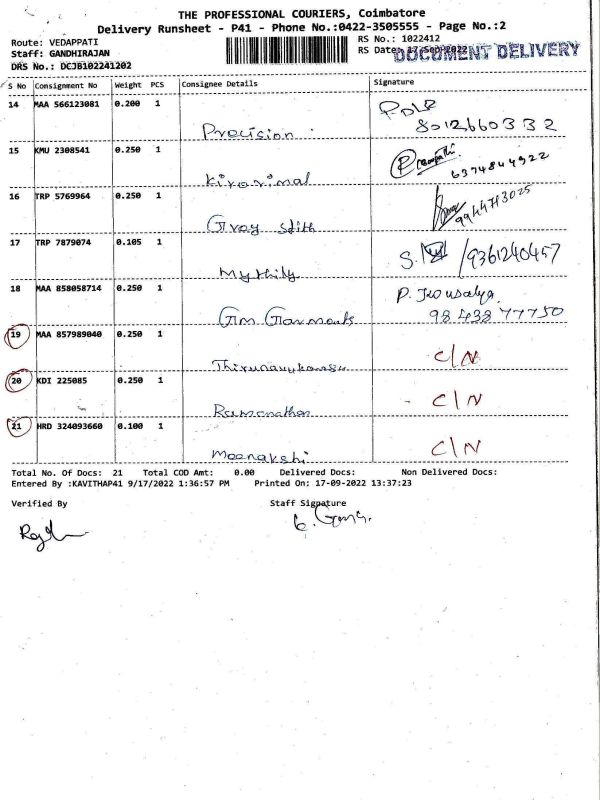 THE PROFESSIONAL COURIERS, Coimbatore
Delivery Runsheet - P41 - Phone No.:0422-3505555 - Page No.:2
Route: VEDAPPATI RS No.: 1022412
Staff: GANDHIRAJAN RS Date: 17 Sep 2022 DOCUMENT DELIVERY
DRS No.: DCJB102241202
S No Consignment No Weight PCS Consignee Details Signature
14 MAA 566123081 0.200 1
Precision 8012660332
15 KMU 2308541 0.250 1
6374844922
16 TRP 5769964 0.250 1
9944713025
17 TRP 7879074 0.105 1
Mythily S. /9361240457
18 MAA 858058714 0.250 1 P. Kousalya
Gm Garments 98438 77750
19 MAA 857989040 0.250 1 C/N
20 KDI 225085 0.250 1 C/N
Ramanathan
21 HRD 324093660 0.100 1 C/N
Meenakshi
Total No. Of Docs: 21 Total COD Amt: 0.00 Delivered Docs: Non Delivered Docs:
Entered By :KAVITHAP41 9/17/2022 1:36:57 PM Printed On: 17-09-2022 13:37:23
Verified By Staff Signature